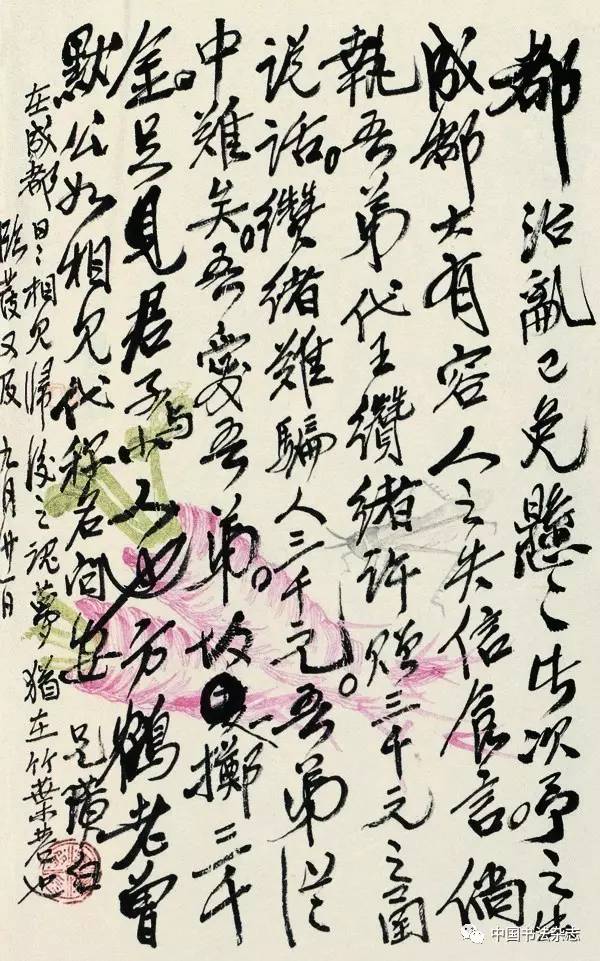 都 治亂已免懸〻 次。予之出
成都大有容人之失信食言。倘
執吾弟代王纘緒許贈三千元之函
說話。纘緒難騙人三千元。吾弟從
中難矣。吾愛吾弟。故 擲三千
金。足見君子與小人也。方鶴老曾
默公如相見代稱名問安 兄璜白
在成都日〻相見歸後之魂夢猶在竹葉巷也
臨發又及 九月廿一日
中国书法杂志